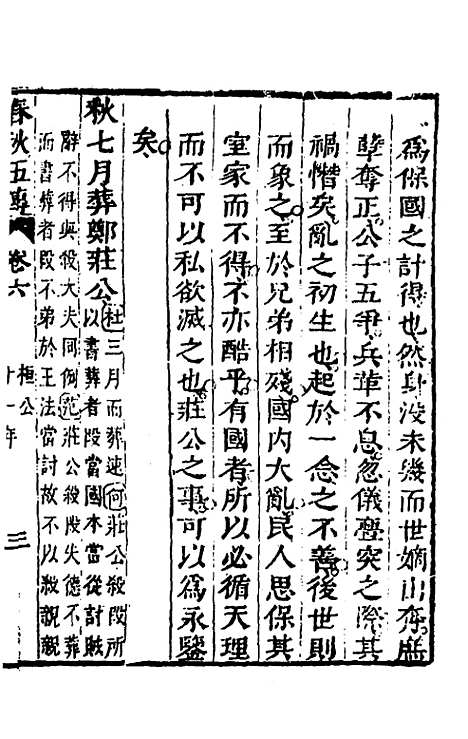 為保國之計得也然身沒未幾而世嫡出奔庶
孽奪正公子五爭兵革不息忽儀亹突之際其
禍憯矣亂之初生也起於一念之不善後世則
而象之至於兄弟相殘國內大亂民人思保其
室家而不得不亦酷乎有國者所以必循天理
而不可以私欲滅之也莊公之事可以為永鑒
矣
秋七月葬鄭莊公杜三月而葬速何莊公殺段所
以書葬者段當國本當從討賊
辭不得與殺大夫同例范莊公殺段失德不葬
而書葬者段不弟於王法當討故不以殺親親
春秋五傳 卷六 桓公 十一年 三